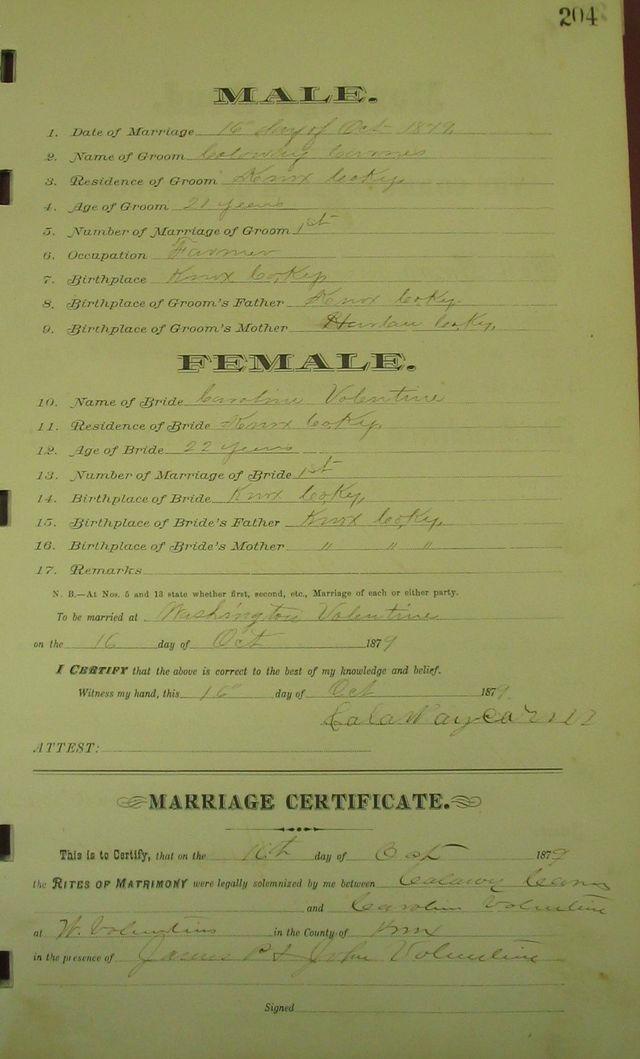 204
MALE.
1. Date of Marriage 16 day of Oct 1879
2. Name of Groom
3. Residence of Groom Knox Co Ky,
4. Age of Groom 21 years
5. Number of Marriage of Groom 1st
6. Occupation Farmer
7. Birthplace Knox Co Ky,
8. Birthplace of Groom's Father Knox Co Ky.
9. Birthplace of Groom's Mother Harlan Co Ky,
FEMALE.
10. Name of Bride Caroline Volentine
11. Residence of Bride Knox Co Ky,
12. Age of Bride 22 years
13. Number of Marriage of Bride 1st
14. Birthplace of Bride Knox Co Ky,
15. Birthplace of Bride's Father Knox Co Ky,
16. Birthplace of Bride's Mother " " "
17. Remarks
N. B.—At Nos. 5 and 13 state whether first, second, etc., Marriage of each or either party.
To be married at Washington Valentine
on the 16 day of Oct 1879
I CERTIFY that the above is correct to the best of my knowledge and belief.
Witness my hand, this 16 day of Oct 1879.
CalaWay
ATTEST:
MARRIAGE CERTIFICATE.
This is to Certify, that on the 16th day of Oct 1879
the RITES OF MATRIMONY were legally solemnized by me between Calaway
and Carolin Volentine
at W. Volentins in the County of Knox
in the presence of James P & John Volentine
Signed